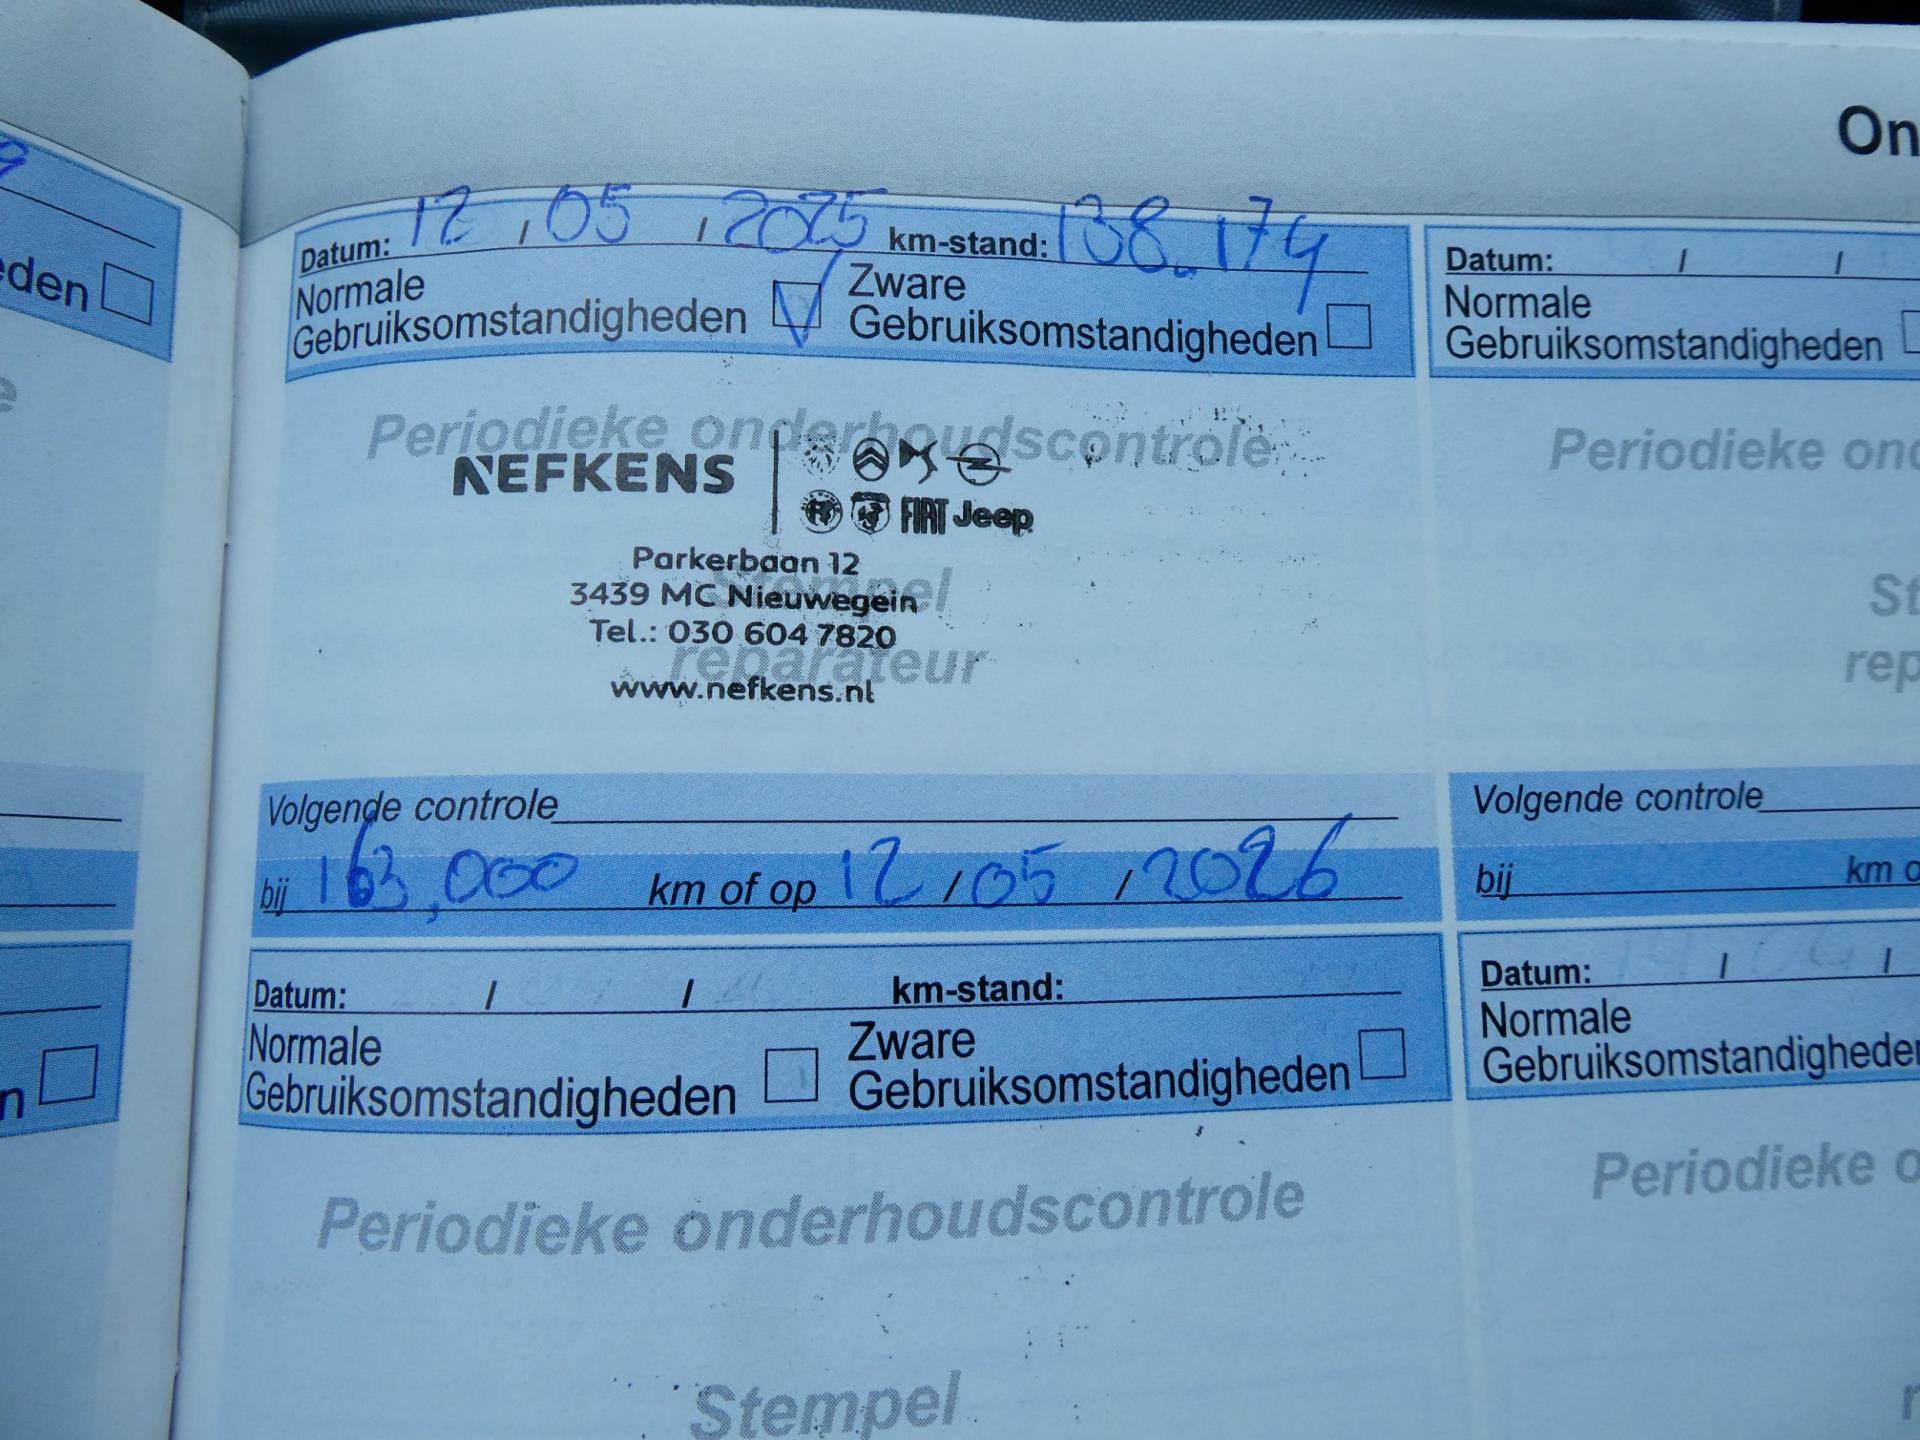 On
Datum: 12 / 05 / 2025 km-stand: 138.174
Normale Gebruiksomstandigheden
Zware Gebruiksomstandigheden
Periodieke onderhoudscontrole
NEFKENS
FIAT Jeep
Parkerbaan 12
3439 MC Nieuwegein
Tel.: 030 604 7820
www.nefkens.nl
Stempel
reparateur
Volgende controle
bij 163,000 km of op 12 / 05 / 2026
Datum: / / km-stand:
Normale Gebruiksomstandigheden
Zware Gebruiksomstandigheden
Periodieke onderhoudscontrole
Stempel
Datum: / /
Normale
Gebruiksomstandigheden
Periodieke ond
St
rep
Volgende controle
bij km o
Datum: / /
Normale
Gebruiksomstandigheden
Periodieke o
r
9
eden
e
n